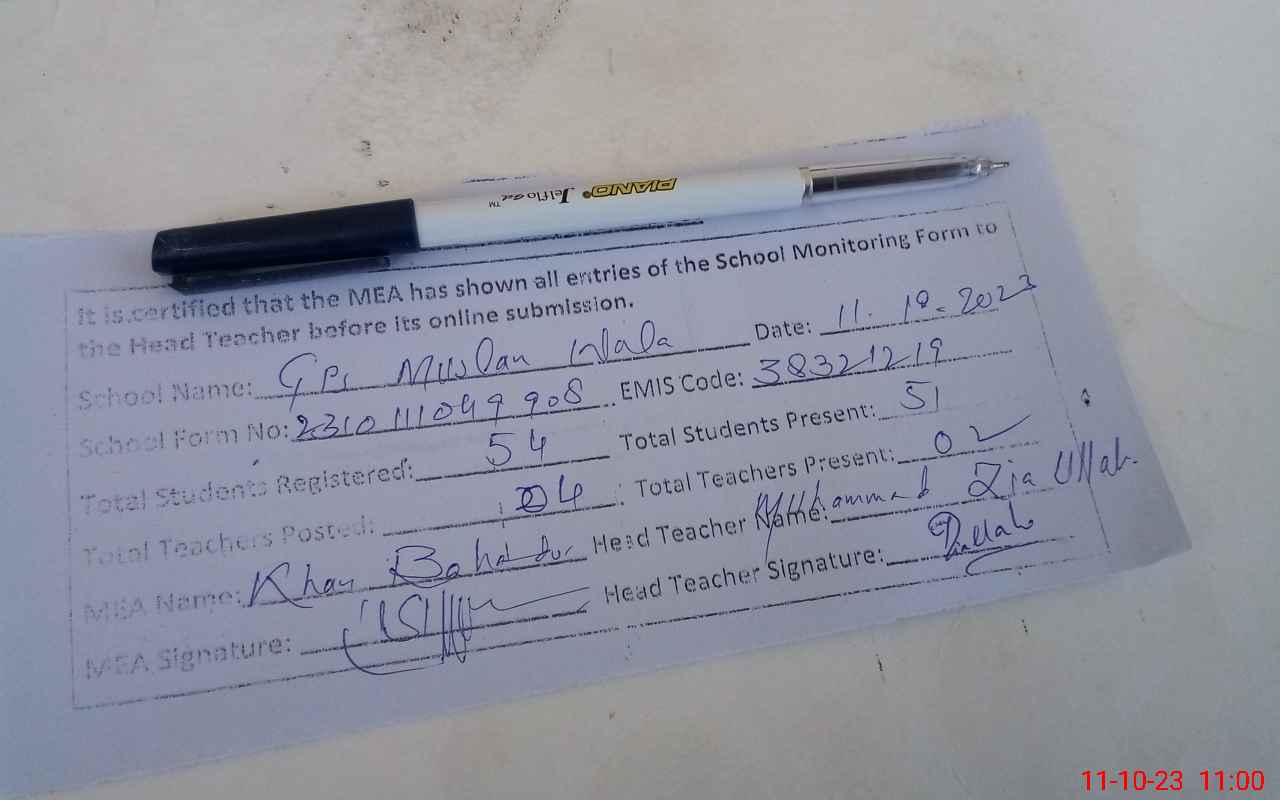 PIANO® Jelflo Gel™
It is certified that the MEA has shown all entries of the School Monitoring Form to
the Head Teacher before its online submission.
School Name: GPS Muslan Wala Date: 11.10.2023
School Form No: 2310111049908 EMIS Code: 38321219
Total Students Registered: 54 Total Students Present: 51
Total Teachers Posted: 04 Total Teachers Present: 02
MEA Name: Khan Bahadur Head Teacher Name: Muhammad Zia Ullah
MEA Signature: Head Teacher Signature: Ziaullah
11-10-23 11:00